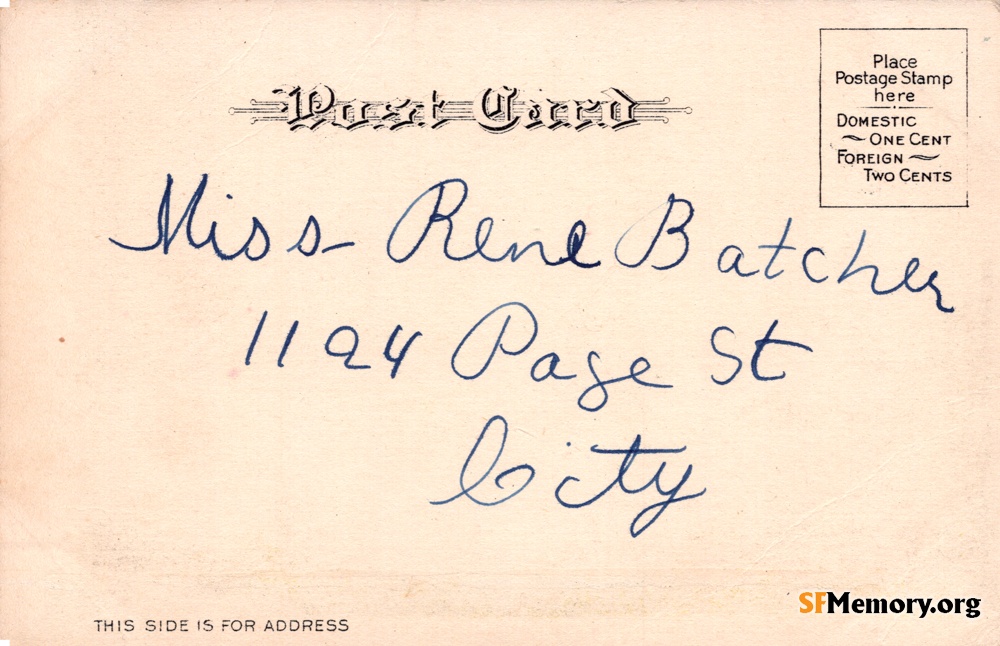 Post Card
Place
Postage Stamp
here
DOMESTIC
ONE CENT
FOREIGN
TWO CENTS
Miss Rene Batcher
1194 Page St
City
THIS SIDE IS FOR ADDRESS
SFMemory.org